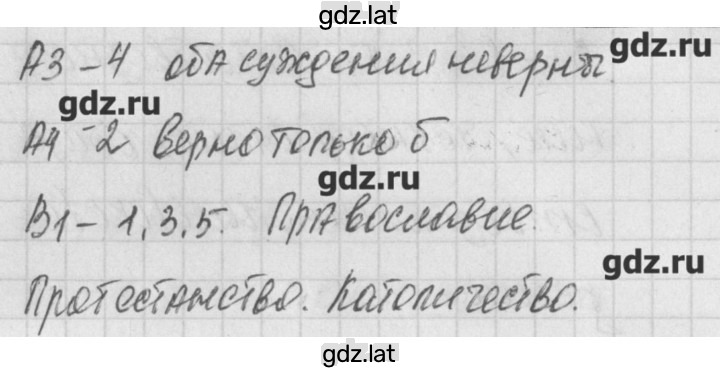 gdz.lat
А3 - 4 оба суждения неверны. gdz.ru
gdz.ru
А4 - 2 верно только б
gdz.ru
В1 - 1, 3, 5. Православие.
gdz.ru
Протестанство. Католичество.
gdz.lat